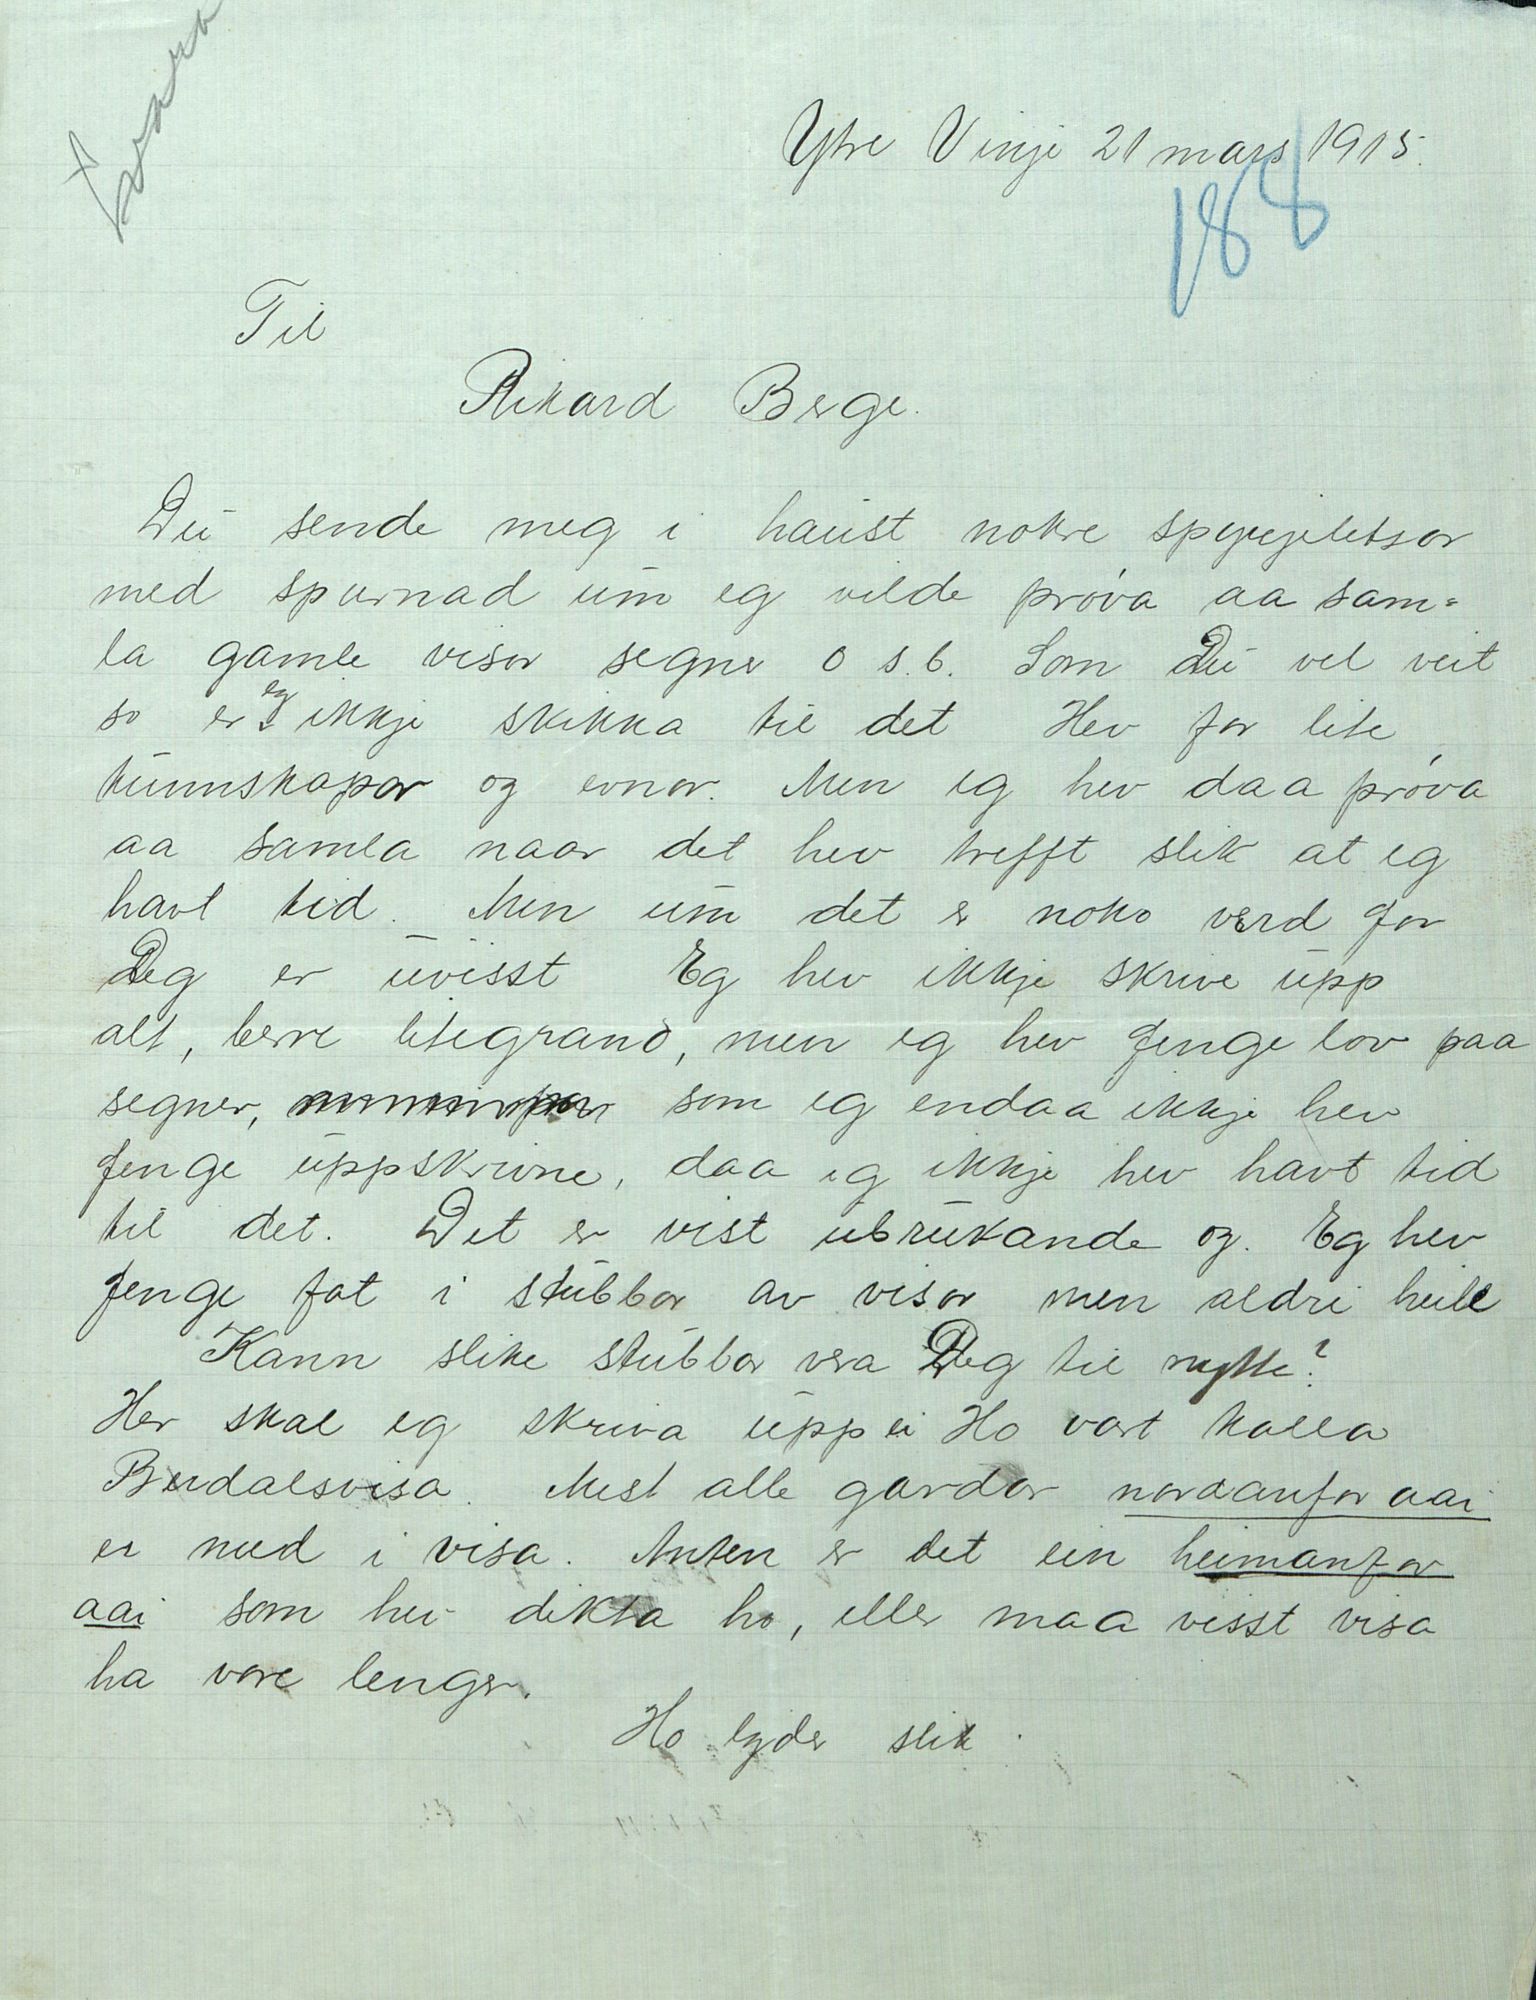 Svara
Ytre Vinje 21 mars 1915.
188
Til
Rikard Berge.
Du sende meg i haust nokre spyrjelitsor
med spurnad um eg vilde prøva aa sam=
la gamle visor segner o s.b. Som Du vel veit
so er eg ikkje skikka til det Hev for lite
kunnskapar og evnor. Men eg hev daa prøva
aa samla naar det hev trefft slik at eg
havt tid. Men um det er noko verd for
Deg er uvisst Eg hev ikkje skrive upp
alt, berre litegrand, men eg hev fenge lov paa
segner, som eg endaa ikkje hev
fenge uppskrivne, daa eg ikkje hev havt tid
til det. Det er vist ubrukande og. Eg hev
fenge fat i stubbar av visor men aldri heile
Kann slike stubbar vera Deg til nytte?
Her skal eg skriva upp ei Ho vart kalla
Burdalsvisa. Mest alle gardar nordanfor aai
er med i visa. Anten er det ein heimanfor
aai som hev dikta ho, eller maa visst visa
ha vore lenger.
Ho lyder slik.